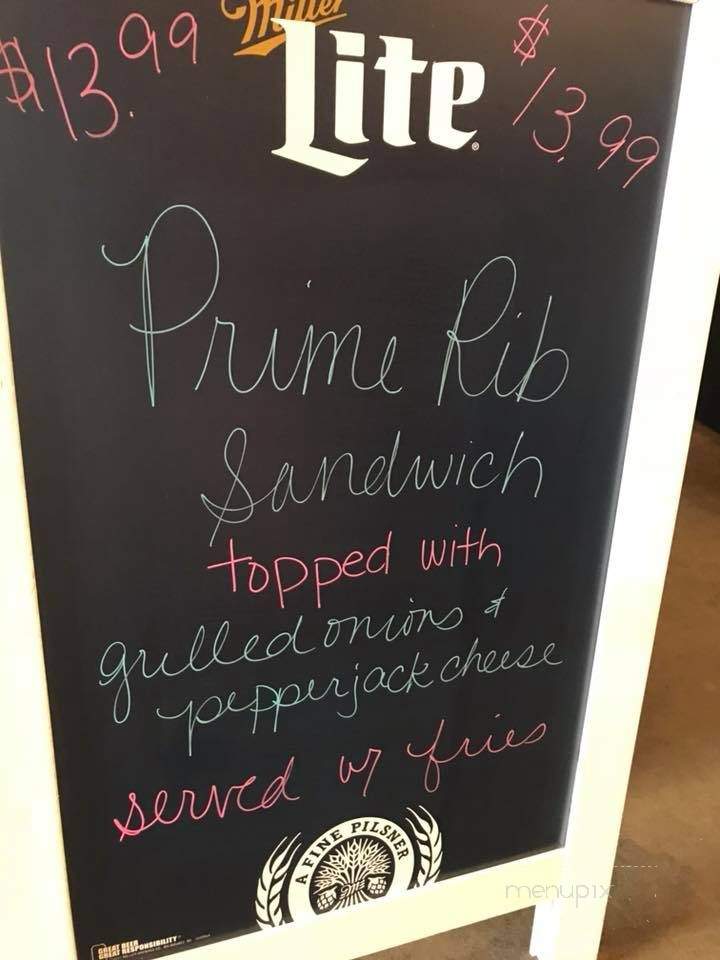 Miller
$13.99
Lite
$13.99
Prime Rib
Sandwich
topped with
grilled onions &
pepperjack cheese
served w/ fries
A FINE PILSNER
GREAT BEER
GREAT RESPONSIBILITY
menupix